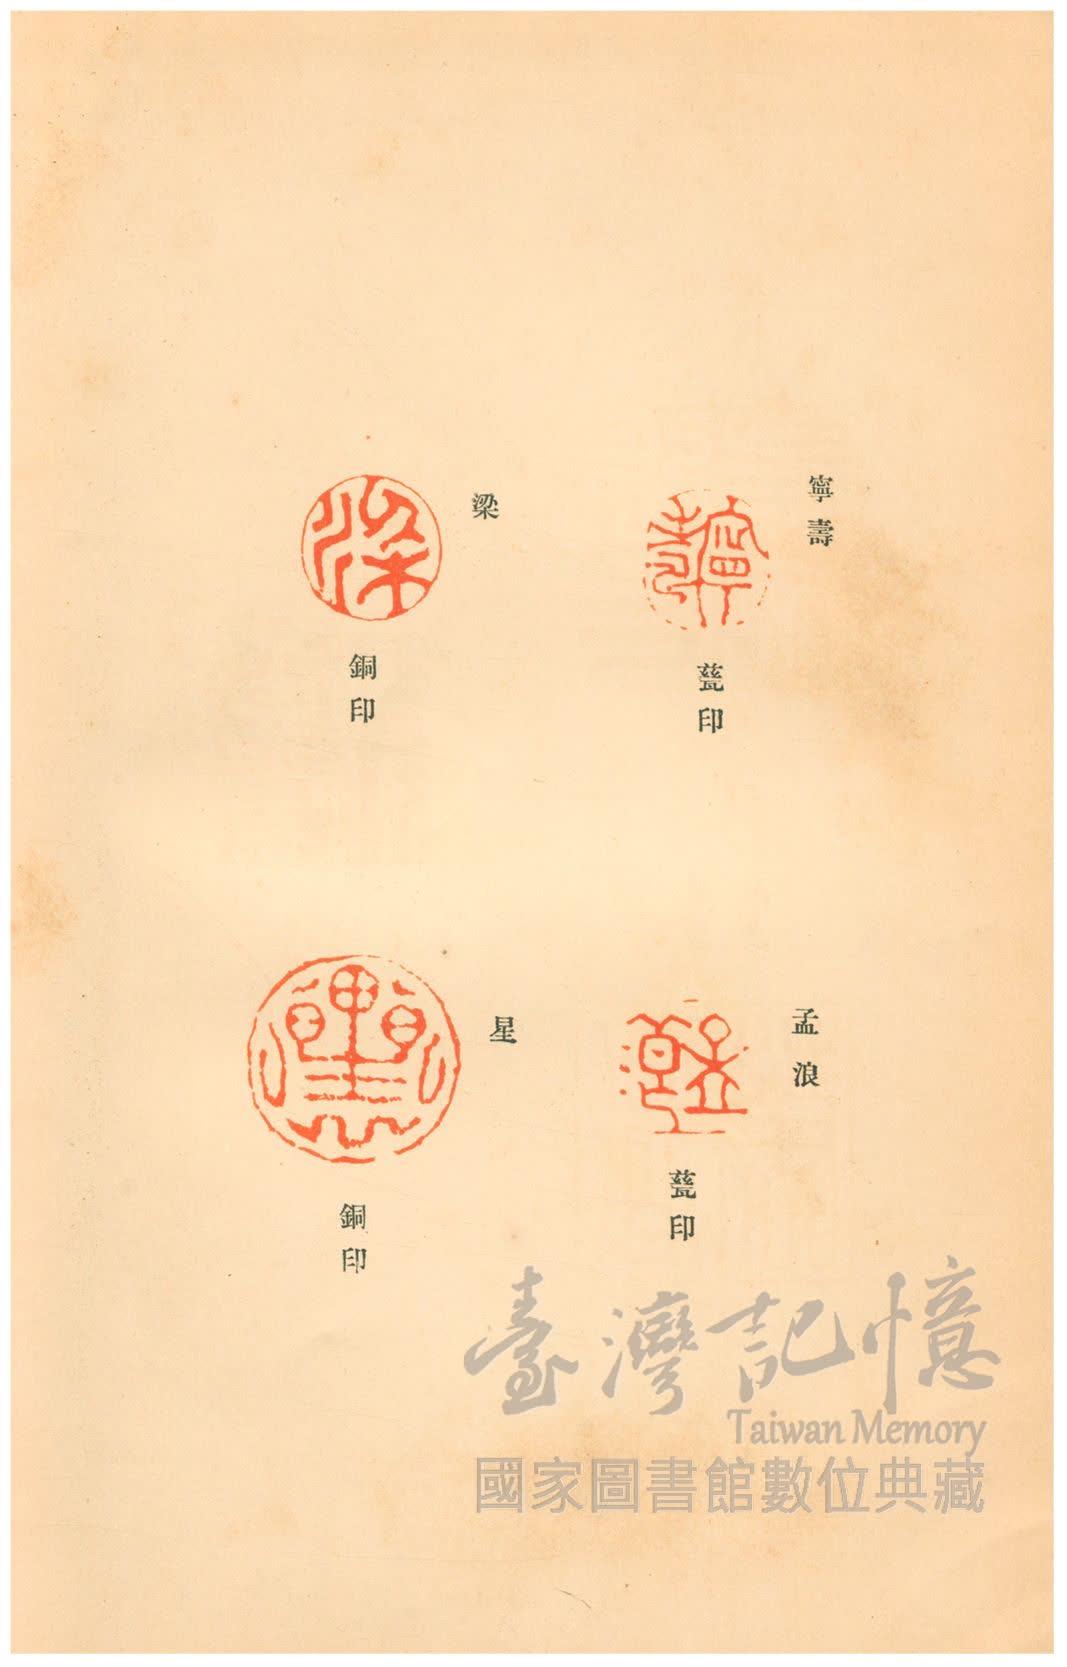 寧壽
甆印
梁
銅印
孟浪
甆印
星
銅印
臺灣記憶
Taiwan Memory
國家圖書館數位典藏